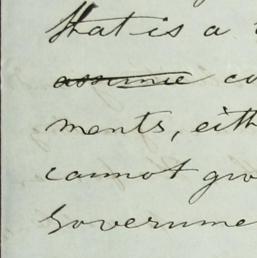 that is a
assume co
ments, eith
cannot giv
Governme